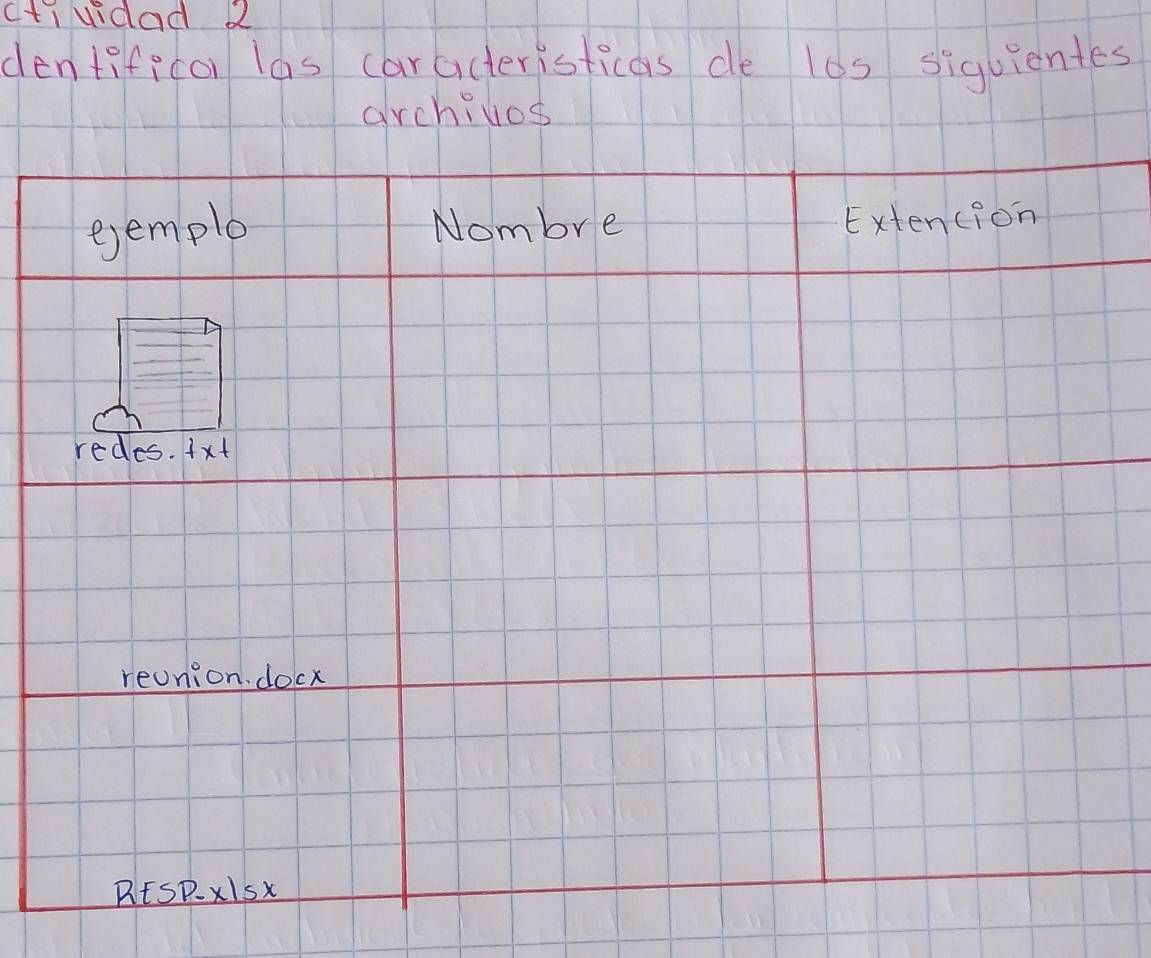 ctividad 2
dentifica las caracteristicas de los siguientes
archivos
ejemplo Nombre Extención
redes.txt
reunion.docx
RESP.xlsx